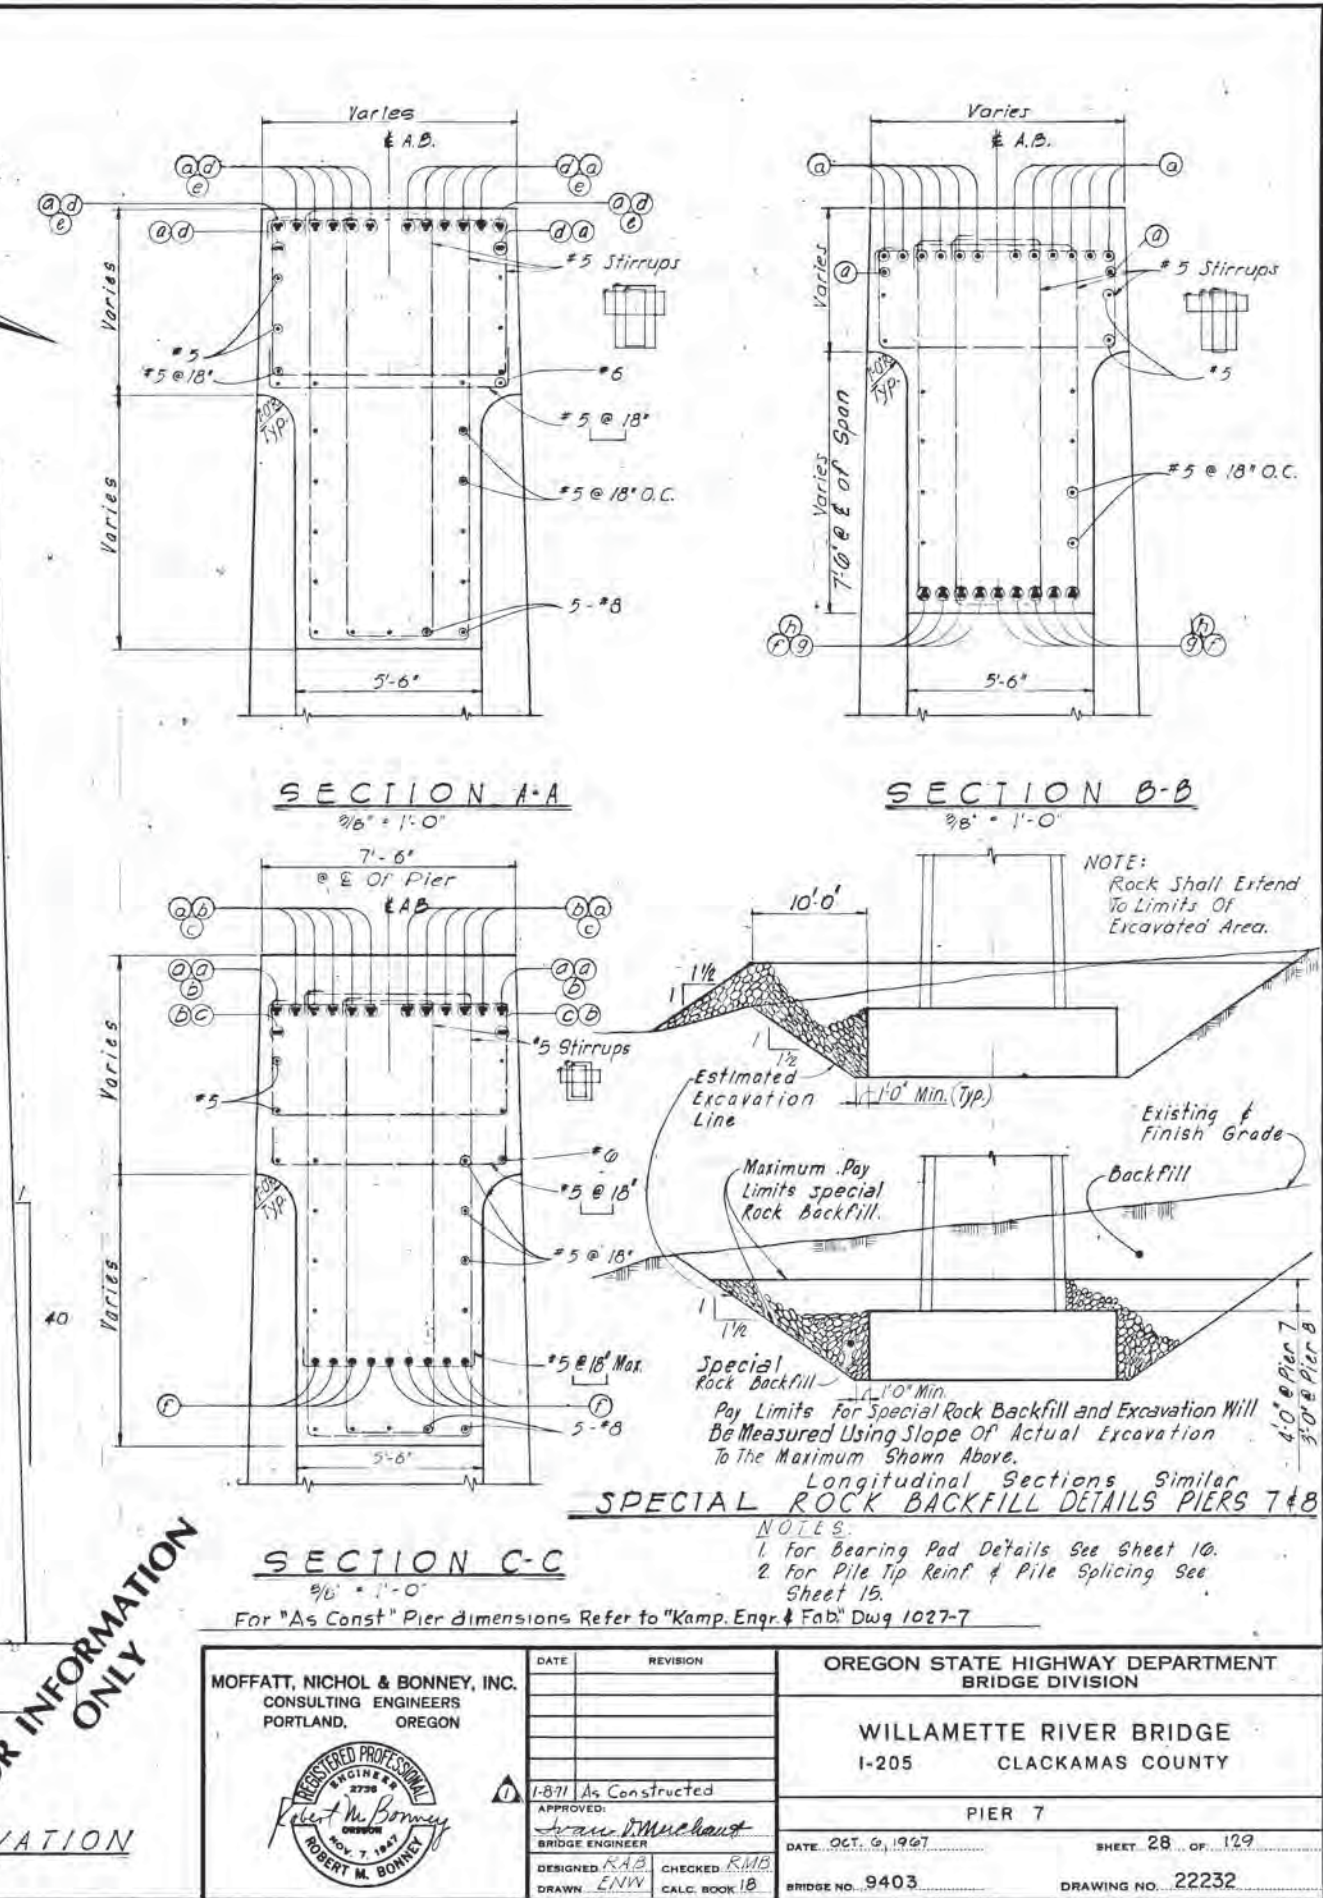 Varies
₵ A.B.
a d
e
d a
e
a d
e
a d
e
a d
d a
#5 Stirrups
Varies
#5
#5 @ 18"
#6
#5 @ 18"
1'-0"R
Typ.
#5 @ 18" O.C.
Varies
5-#8
5'-6"
SECTION A-A
3/8" = 1'-0"
Varies
₵ A.B.
a
a
a
a
#5 Stirrups
Varies
#5
1'-0"R
Typ.
Varies
7'-6" @ ₵ of Span
#5 @ 18" O.C.
h
f g
h
g f
5'-6"
SECTION B-B
3/8" = 1'-0"
7'-6"
@ ₵ Of Pier
₵ A.B.
a b
c
b a
c
a a
b
a a
b
b c
c b
#5 Stirrups
Varies
#5
#6
#5 @ 18"
1'-0"R
Typ.
#5 @ 18"
Varies
#5 @ 18" Max.
f
f
5-#8
5'-6"
SECTION C-C
3/8" = 1'-0"
40
NOTE:
Rock Shall Extend
To Limits Of
Excavated Area.
10'-0"
1 1/2
1
1
1 1/2
Estimated
Excavation
Line
1'-0" Min. (Typ.)
Existing &
Finish Grade
Maximum Pay
Limits special
Rock Backfill.
Backfill
1
1 1/2
Special
Rock Backfill
1'-0" Min.
4'-0" @ Pier 7
3'-0" @ Pier 8
Pay Limits For Special Rock Backfill and Excavation Will
Be Measured Using Slope Of Actual Excavation
To The Maximum Shown Above.
Longitudinal Sections Similar
SPECIAL ROCK BACKFILL DETAILS PIERS 7 & 8
NOTES:
1. For Bearing Pad Details See Sheet 16.
2. For Pile Tip Reinf. & Pile Splicing See
Sheet 15.
For "As Const" Pier dimensions Refer to "Kamp. Engr. & Fab." Dwg 1027-7
R INFORMATION
ONLY
VATION
MOFFATT, NICHOL & BONNEY, INC.
CONSULTING ENGINEERS
PORTLAND, OREGON
REGISTERED PROFESSIONAL
ENGINEER
2736
Robert M. Bonney
OREGON
NOV. 7, 1947
ROBERT M. BONNEY
DATE REVISION
1
1-8-71 As Constructed
APPROVED:
Ivan D. Merchant
BRIDGE ENGINEER
DESIGNED RAB CHECKED RMB
DRAWN ENW CALC. BOOK 18
OREGON STATE HIGHWAY DEPARTMENT
BRIDGE DIVISION
WILLAMETTE RIVER BRIDGE
I-205 CLACKAMAS COUNTY
PIER 7
DATE OCT. 6, 1967 SHEET 28 OF 129
BRIDGE NO. 9403 DRAWING NO. 22232